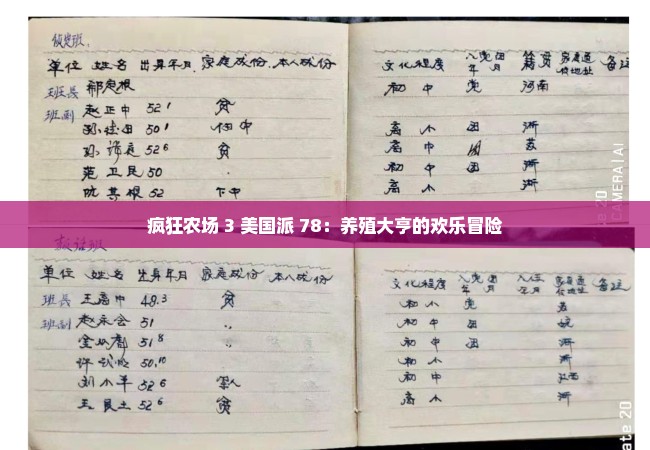 侦察班.
单位 姓名 出身年月 家庭成份 本人成份
文化程度 入党团 年 月 籍贯 家庭通信地址 备注
班长 祁定根
初 中 党 河南
班副 赵正中 52 1 贫
高 小 团 浙
50 1 佃中
高 中 苏
52 6 贫
初 中 团 浙
范卫民 50
高 小 浙
52 下中
疯狂农场 3 美国派 78：养殖大亨的欢乐冒险
单位 姓名 出身年月 家庭成份 本人成份
文化程度 入党团 年 月 入伍 年 月 备注
班长 王高中 49.3 贫
初 小 党 苏
班副 赵永会 51 〃
初 中 团 皖
51 8 〃
初 中 团 浙
许 50.10
初 小 浙
刘小羊 52 6 军人
初 中 江西
王良土 52 6 贫
高 小 浙
CAMERA|AI
ate 20